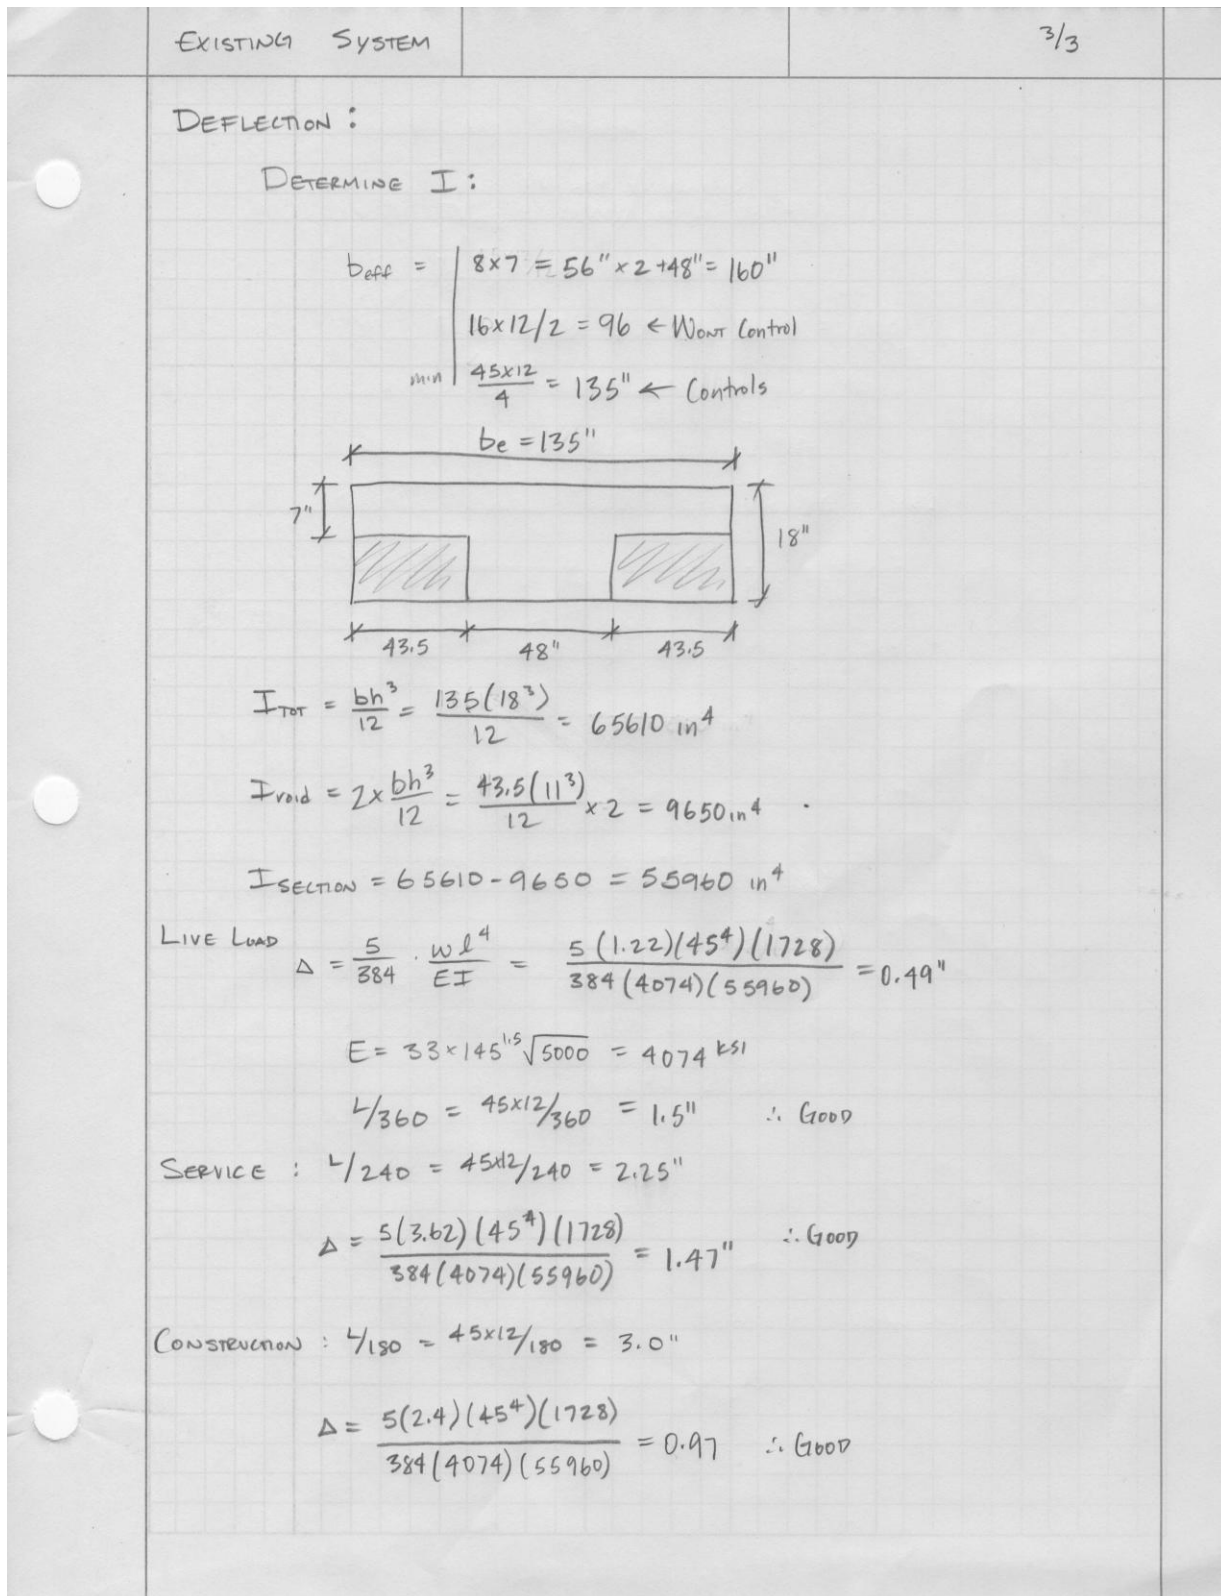 EXISTING SYSTEM 3/3
DEFLECTION :
DETERMINE I :
beff = 8x7 = 56" x 2 +48" = 160"
16x12/2 = 96 ← WONT Control
min 45x12/4 = 135" ← Controls
be = 135"
7"
18"
43.5 48" 43.5
ITOT = bh³/12 = 135(18³)/12 = 65610 in⁴
Ivoid = 2x bh³/12 = 43.5(11³)/12 x 2 = 9650 in⁴
ISECTION = 65610 - 9650 = 55960 in⁴
LIVE LOAD
Δ = 5/384 · wl⁴/EI = 5(1.22)(45⁴)(1728)/384(4074)(55960) = 0.49"
E = 33x145^1.5 √5000 = 4074 ksi
L/360 = 45x12/360 = 1.5" ∴ GOOD
SERVICE : L/240 = 45x12/240 = 2.25"
Δ = 5(3.62)(45⁴)(1728)/384(4074)(55960) = 1.47" ∴ GOOD
CONSTRUCTION : L/180 = 45x12/180 = 3.0"
Δ = 5(2.4)(45⁴)(1728)/384(4074)(55960) = 0.97 ∴ GOOD